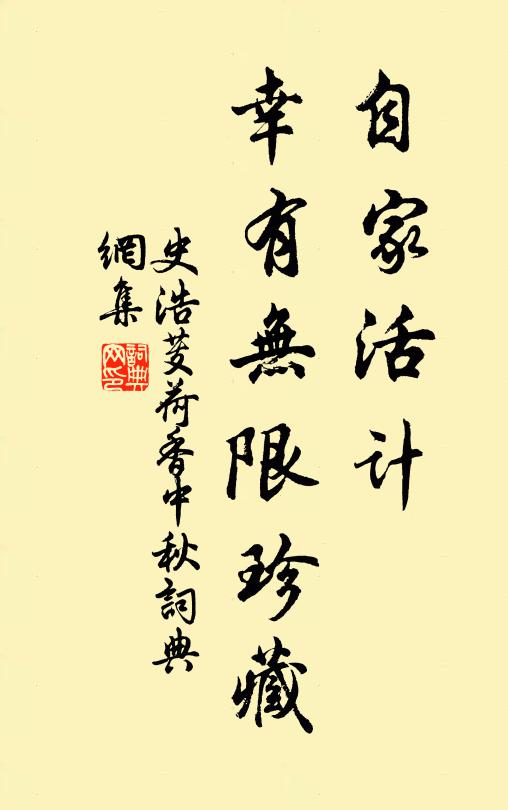 自家活计
幸有無限珍藏
史浩芰荷香中秋詞典
網集
詞典
网印